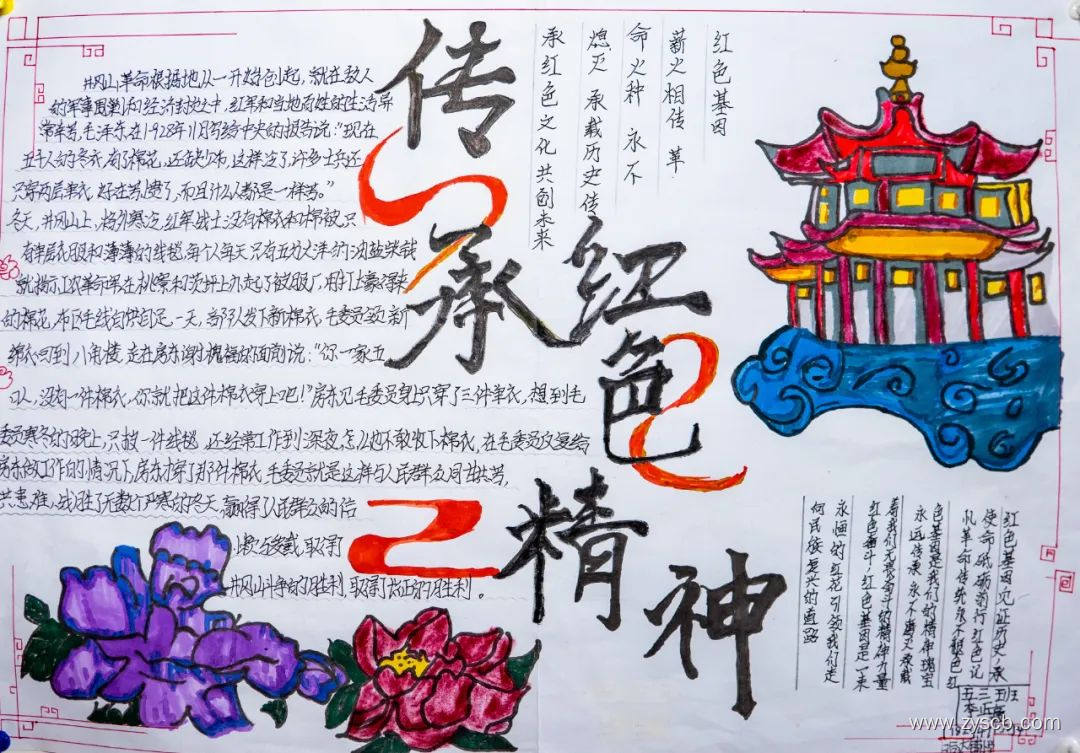 传承红色精神
井冈山革命根据地从一开始创起，就在敌人
的军事围剿和经济封锁之中，红军和当地百姓的生活异
常辛苦，毛泽东在1928年11月写给中央的报告说："现在
五千人的冬衣，有了棉花，还缺少布，这样冷了，许多士兵还
只穿两层单衣，好在苦惯了，而且什么人都是一样苦。"
冬天，井冈山上，格外寒冷，红军战士没有棉衣和棉被，只
有单层衣服和薄薄的线毯，每个人每天只有五分大洋的油盐柴钱
的棉花，布匹毛线
绵衣回到八角楼，走在房东谢槐福的面前说："你一家五
口人，没有一件棉衣，你就把这件棉衣穿上吧！"房东见毛委员身上只穿了三件单衣，想到毛
委员寒冬的晚上，只披一件线毯，还经常工作到深夜，怎么也不敢收下棉衣，在毛委员反复给
房东做工作的情况下，房东才穿了那件棉衣，毛委员就是这样与人民群众同甘共苦，
共患难，战胜了无数个严寒的冬天，赢得了人民群众的信
赖与爱戴，取得了
井冈山斗争的胜利，取得了长征的胜利。
红色基因
薪火相传 革
命火种 永不
熄灭 承载历史 传
承红色文化 共创未来
红色基因见证历史，承
使命砥砺前行 红色记
忆革命传统永不褪色 红
色基因是我们的精神瑰宝
永远传承 永不磨灭 承载
着我们无畏奋斗的精神力量
红色奋斗，红色基因是一束
永恒的红花引领我们走
向民族复兴的道路
五三五班
www.zyscb.com